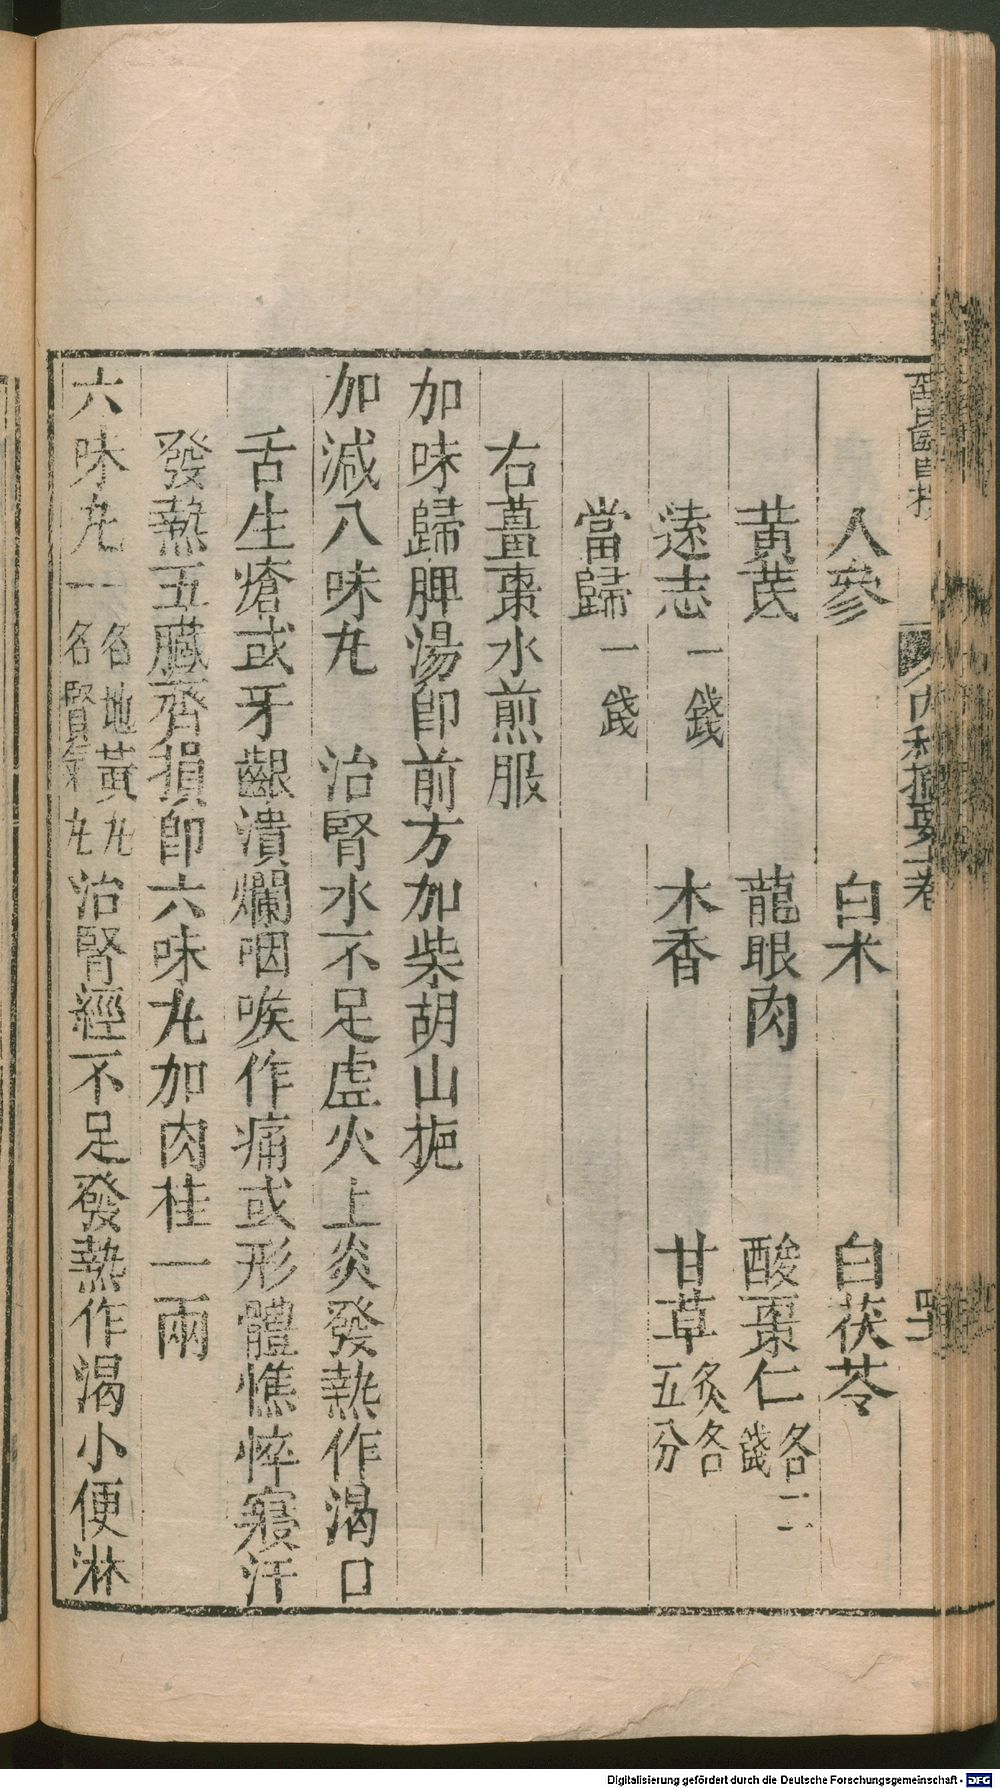 人參　白术　白茯苓
黃芪　龍眼肉　酸棗仁各二錢
遠志一錢　木香　甘草炙各五分
當歸一錢
右薑棗水煎服
加味歸脾湯卽前方加柴胡山梔
加減八味丸　治腎水不足虛火上炎發熱作渴口
舌生瘡或牙齦潰爛咽喉作痛或形體憔悴寢汗
發熱五臟齊損卽六味丸加肉桂一兩
六味丸一名地黃丸一名腎氣丸治腎經不足發熱作渴小便淋
內科摘要卷
Digitalisierung gefördert durch die Deutsche Forschungsgemeinschaft - DFG